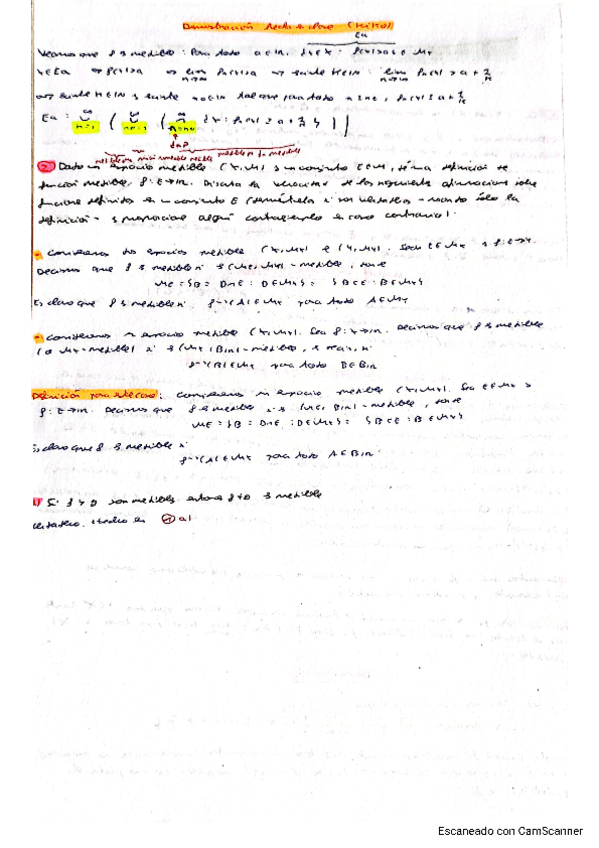 Demostración hecha en clase (Kiko)
Ea
Veamos que f es medible: Para todo a∈ℝ, {x∈X : f(x)>a} ∈ M_X
x∈Ea ⇔ f(x)>a ⇔ lim n→∞ fn(x)>a ⇔ existe k∈ℕ : lim n→∞ fn(x) > a + 1/k
⇔ existe k∈ℕ y existe n0∈ℕ tal que para todo n≥n0, fn(x) ≥ a + 1/k
Ea = ∪ k=1 ∞ ( ∪ n0=1 ∞ ( ∩ n=n0 ∞ {x : fn(x) ≥ a + 1/k} ) )
Dado un espacio medible (X, M_X) y un conjunto E∈M, dé una definición de
función medible f: E→ℝ. Discuta la veracidad de las siguientes afirmaciones sobre
funciones definidas en un conjunto E (demuéstrela si son verdaderas - usando sólo la
definición - y proporcione algún contraejemplo en caso contrario).
- Consideramos dos espacios medibles (X, M_X) e (Y, M_Y). Sean E∈M_X y f: E→Y.
Decimos que f es medible si es (M_E, M_Y)-medible, donde
M_E = {B = D∩E : D∈M_X} = {B⊂E : B∈M_X}
Es claro que f es medible si f⁻¹(A)∈M_X para todo A∈M_Y
- Consideramos un espacio medible (X, M_X). Sea f: X→ℝ. Decimos que f es medible
(o M_X-medible) si es (M_X, B(ℝ))-medible, es decir, si
f⁻¹(B)∈M_X para todo B∈B(ℝ)
Definición para este caso: Consideramos un espacio medible (X, M_X). Sea E∈M_X y
f: E→ℝ. Decimos que f es medible si es (M_E, B(ℝ))-medible, donde
M_E = {B = D∩E : D∈M_X} = {B⊂E : B∈M_X}
Es claro que f es medible si
f⁻¹(A)∈M_X para todo A∈B(ℝ)
Si f y g son medibles entonces f+g es medible
Verdadero. Hecho en a)
Escaneado con CamScanner